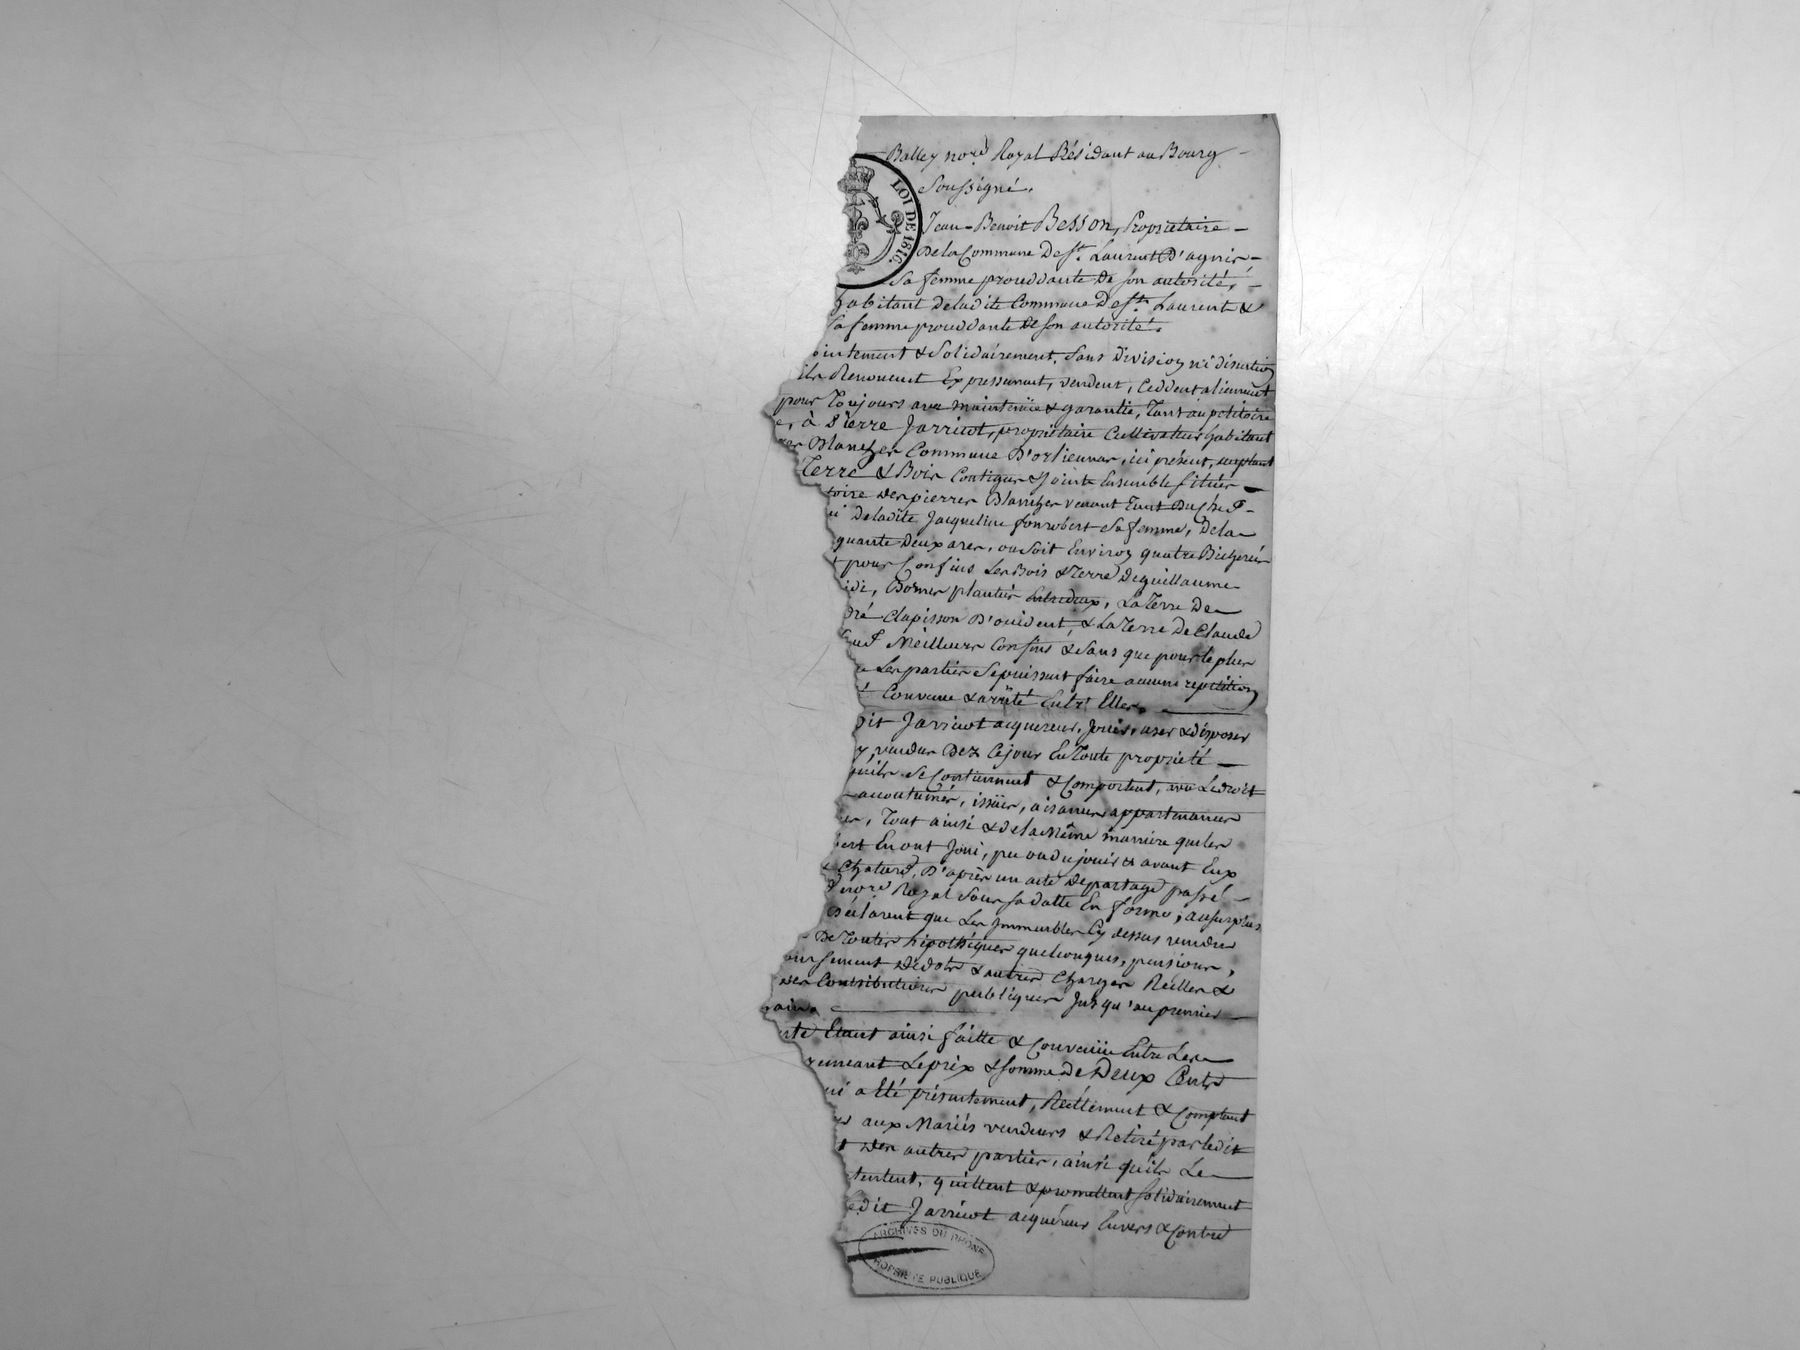 Balley nore Royal Résidant au Bourg
soussigné.
LOI DE 1816.
Jean-Benoit Besson, Propriétaire
De la Commune De St. Laurent D'agnir
Sa femme procédante De son autorité,
habitant de ladite Commune De St. Laurent &
sa femme procédante De son autorité.
ointement & Solidairement, Sans division ni discution
ils Renoncent Expressement, vendent, Ceddent aliennent
pour Toujours avec maintenüe & garantie, Tant au petitoire
e, à Pierre Jarricot, propriétaire Cultivateur habitant
res Blanches Commune D'orlienas, ici présent, acceptant
Terre & Bois Contigus & Joints Ensemble situés
toire des pierres Blanches venant Tant Du Chef
De ladite Jacqueline fonrobert Sa femme, De la
quante Deux ares, ou Soit Environ quatre Bicherées
t pour Confins Les Bois & Terre De guillaume
idi, Bornes plantées Entredeux, La Terre De
dré Clapisson D'occident, & La Terre De Claude
Meilleurs Confins & Sans que pour le plus
Les parties Se puissent faire aucune repétition
Convenu & arrêté Entr'Elles.
dit Jarricot acquereur, Jouir, user & disposer
vendus Dez Ce jour En Toute propriété
quils Se Contiennent & Comportent, avec Le droit
accoutumés, issües, aisances appartenances
es, Tout ainsi & de la Même manière que les
bert En ont Joui, pu ou du jouir & avant Eux
Chatard, D'après un acte De partage passé
nore Royal Sous Sa datte En forme; au surplus
Déclarent que Les Immeubles Cy dessus vendus
De Toutes hipothèques quelconques, pensions,
De dots & autres Charges Réelles &
des Contributions publiques Jusqu'au premier
ain.
nte Etant ainsi faitte & Convenüe Entre Les
yennant Le prix & Somme De Deux Cents
ui a Eté présentement, Réellement & Comptant
aux Mariés vendeurs & Retiré par ledit
t Des autres parties, ainsi quils Le
tentent, quittent & promettent Solidairement
edit Jarricot acquéreur Envers & Contre
ARCHIVES DU RHÔNE
PROPRIÉTÉ PUBLIQUE